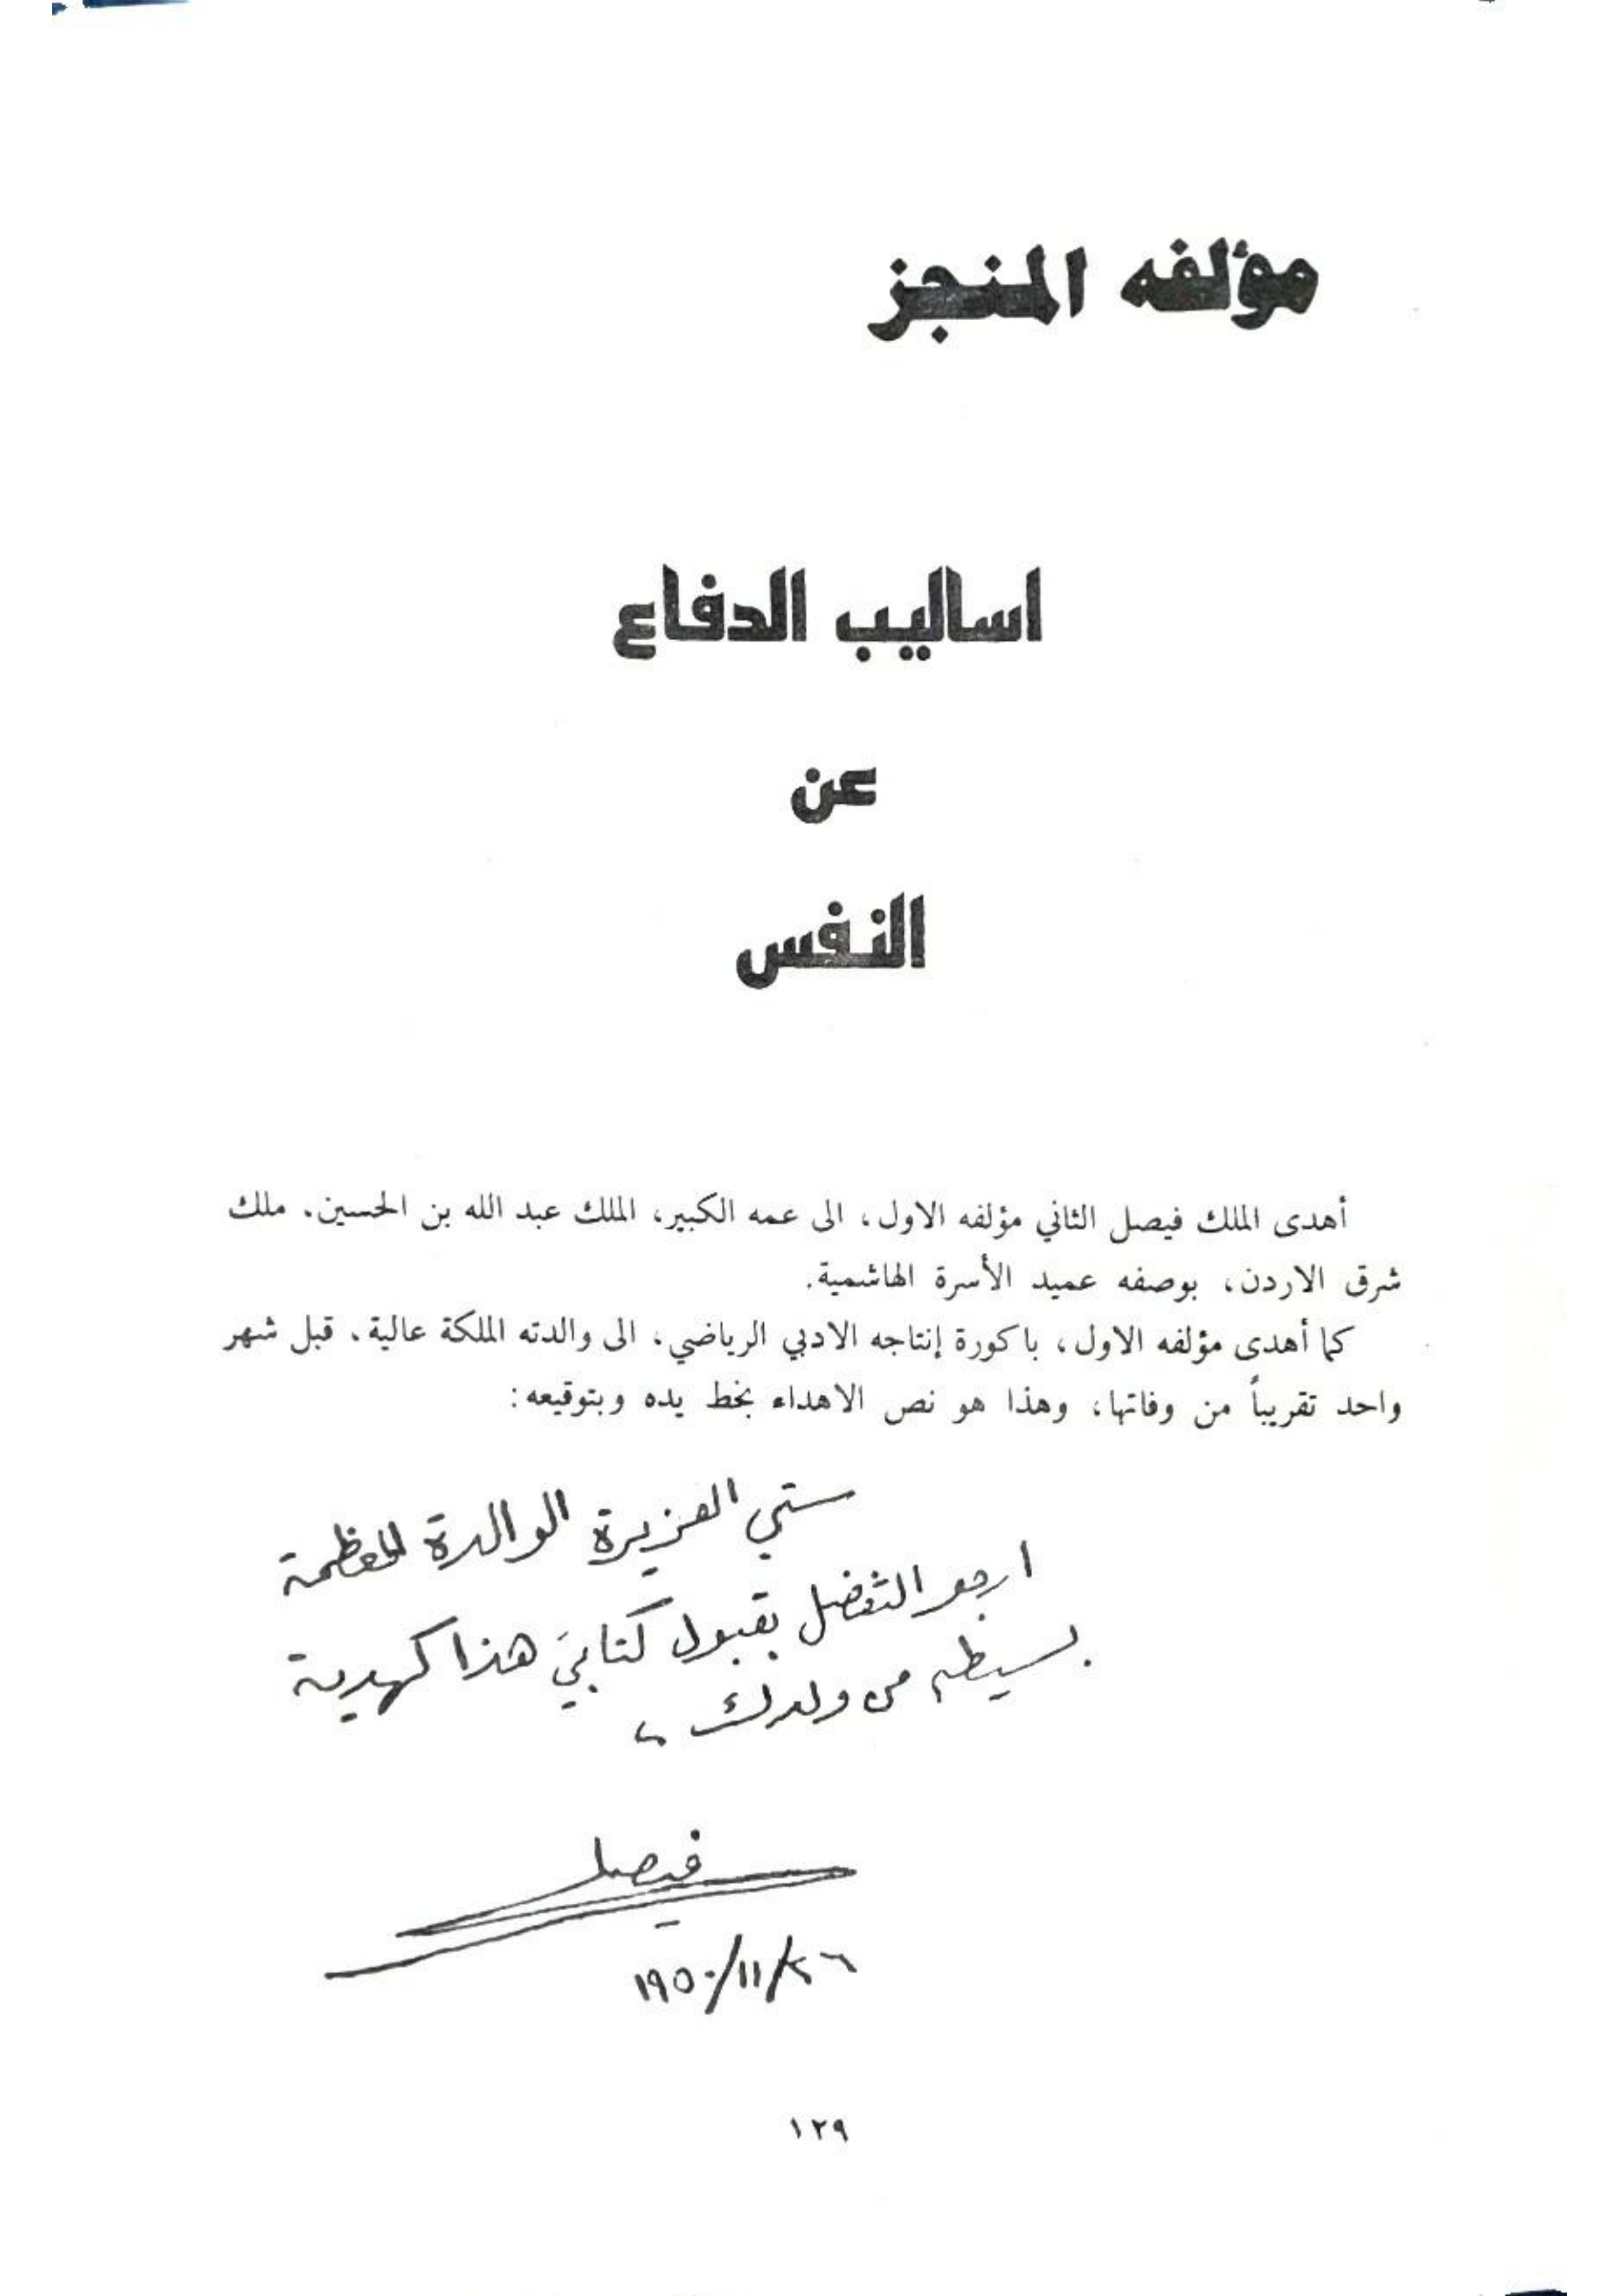 مؤلفه المنجز
اساليب الدفاع
عن
النفس
أهدى الملك فيصل الثاني مؤلفه الاول، الى عمه الكبير، الملك عبد الله بن الحسين. ملك
شرق الاردن، بوصفه عميد الأسرة الهاشمية.
كما أهدى مؤلفه الاول، باكورة إنتاجه الادبي الرياضي، الى والدته الملكة عالية. قبل شهر
واحد تقريباً من وفاتها، وهذا هو نص الاهداء بخط يده وبتوقيعه:
ستي العزيزة الوالدة المعظمة
ارجو التفضل بقبول كتابي هذا كهدية
بسيطه من ولدك
فيصل
٢٦/١١/١٩٥٠
١٢٩